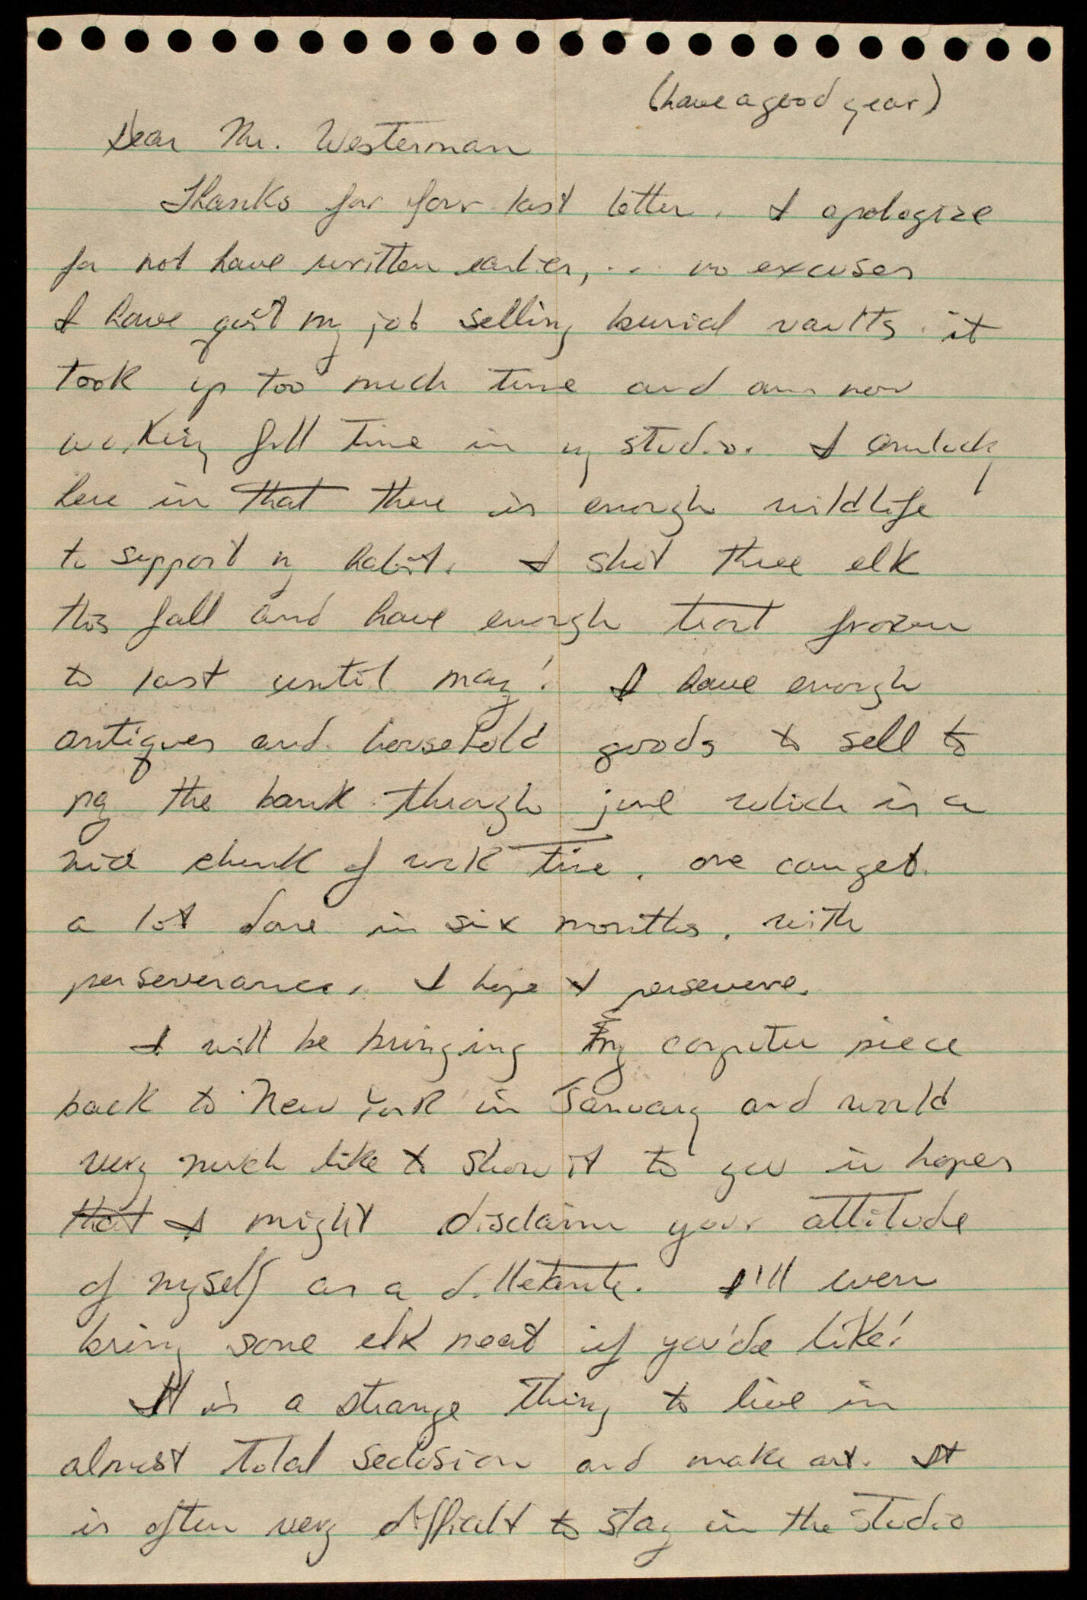 (have a good year)
Dear Mr. Westerman
Thanks for your last letter. I apologize
for not have written earlier, .. no excuses
I have quit my job selling burial vaults. it
took up too much time and am now
working full time in my studio. I am lucky
here in that there is enough wildlife
to support my habit. I shot three elk
this fall and have enough trout frozen
to last until may! I have enough
antiques and household goods to sell to
pay the bank through june which is a
nice chunk of work time. one can get
a lot done in six months. with
perseverance. I hope I persevere.
I will be bringing my computer piece
back to New York in January and would
very much like to show it to you in hopes
that I might disclaim your attitude
of myself as a dilletante. I'll even
bring some elk meat if you'de like!
It is a strange thing to live in
almost total seclusion and make art. It
is often very difficult to stay in the studio